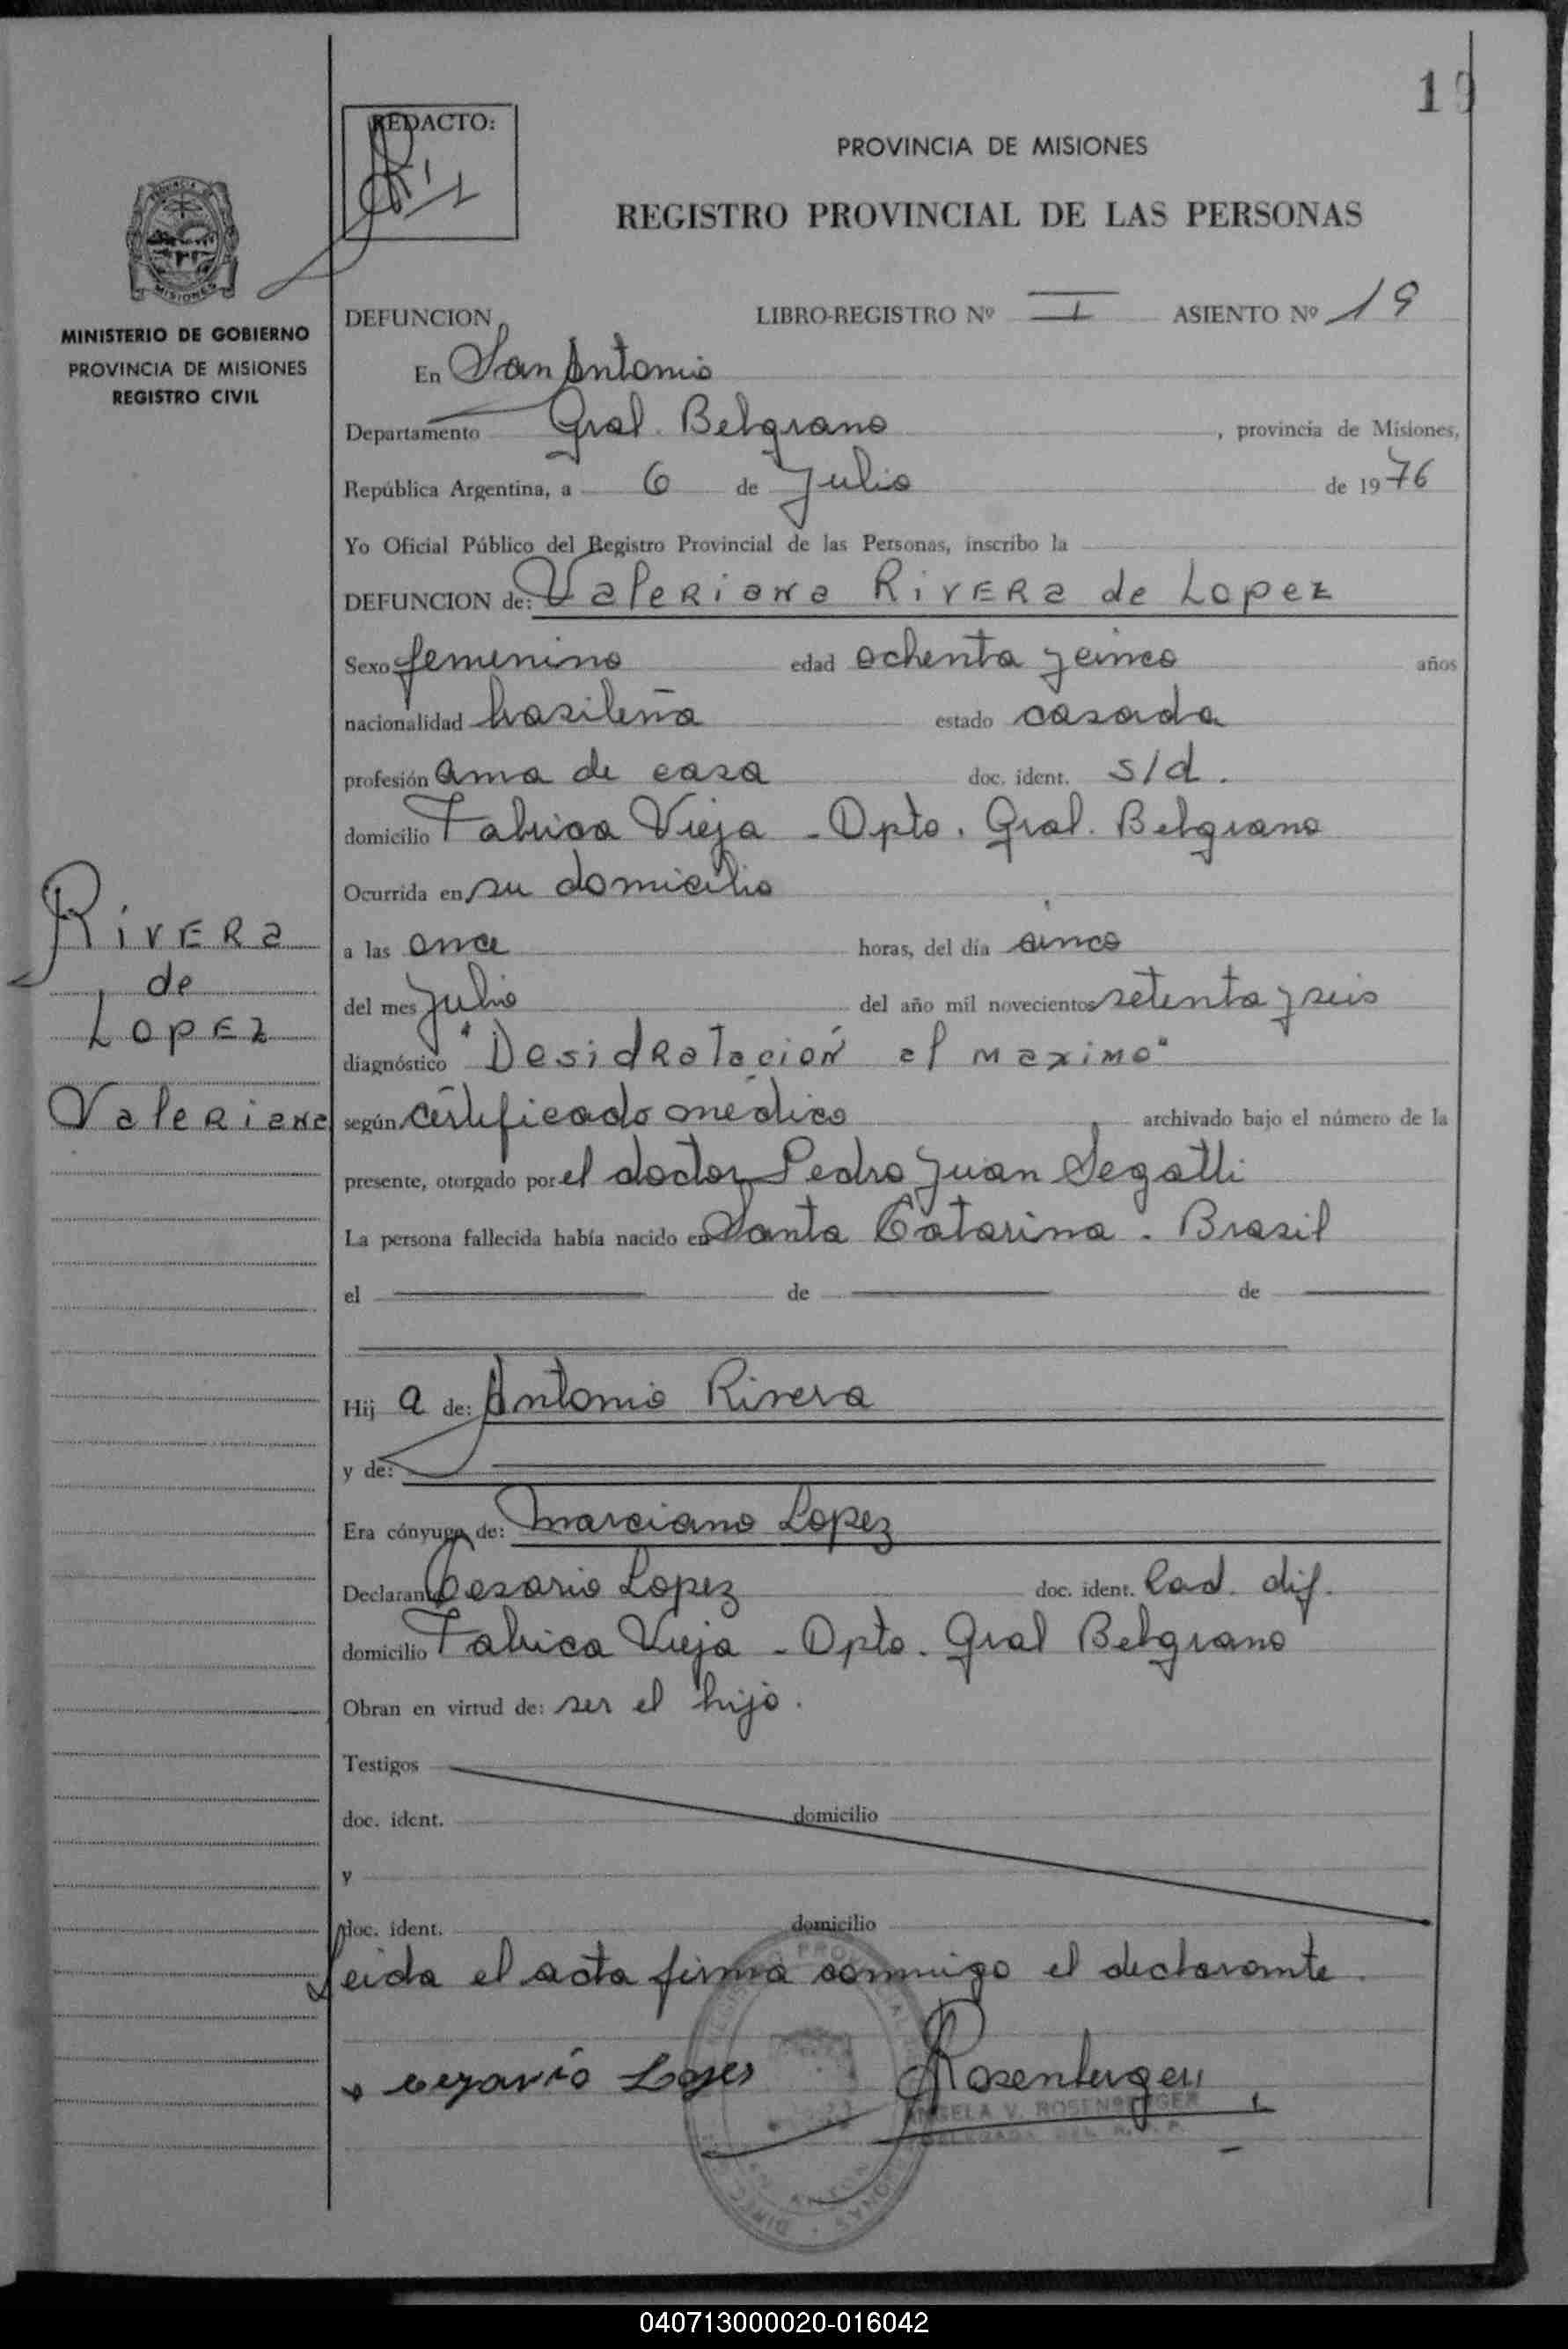 19
REDACTO:
PROVINCIA DE MISIONES
REGISTRO PROVINCIAL DE LAS PERSONAS
MISIONES
MINISTERIO DE GOBIERNO
PROVINCIA DE MISIONES
REGISTRO CIVIL
DEFUNCION LIBRO-REGISTRO Nº I ASIENTO Nº 19
En San Antonio
Departamento Gral. Belgrano, provincia de Misiones,
República Argentina, a 6 de Julio de 1976
Yo Oficial Público del Registro Provincial de las Personas, inscribo la
DEFUNCION de: Valeriana Rivera de Lopez
Sexo femenino edad ochenta y cinco años
nacionalidad brasileña estado casada
profesión ama de casa doc. ident. s/d.
domicilio Fabrica Vieja - Dpto. Gral. Belgrano
Ocurrida en su domicilio
a las once horas, del día cinco
del mes Julio del año mil novecientos setenta y seis
diagnóstico "Desidratación al maximo"
según certificado médico archivado bajo el número de la
presente, otorgado por el doctor Pedro Juan Segatti
La persona fallecida había nacido en Santa Catarina - Brasil
el de de
Hija de: Antonio Rivera
y de:
Era cónyuge de: Marciano Lopez
Declarante Cesario Lopez doc. ident. Cad. dif.
domicilio Fabrica Vieja - Dpto. Gral Belgrano
Obran en virtud de: ser el hijo.
Testigos
doc. ident. domicilio
y
doc. ident. domicilio
Leida el acta firma conmigo el declarante.
cezario Lopes Rosenberger
ANGELA V. ROSENBERGER
DELEGADA DEL R. P. P.
Rivera
de
Lopez
Valeriana
040713000020-016042